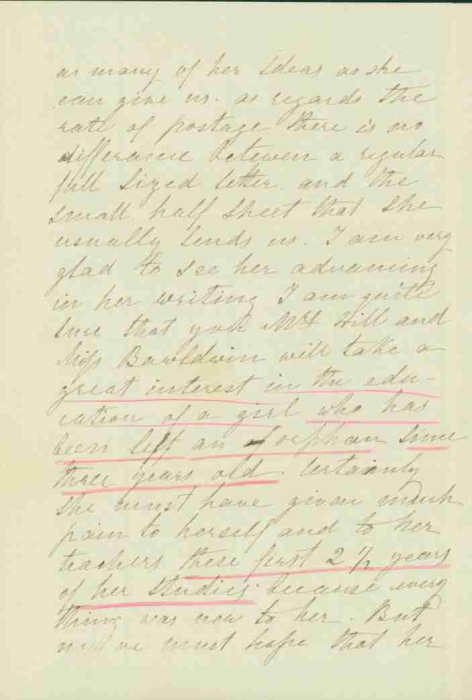 as many of her ideas as she
can give us. as regards the
rate of postage there is no
difference between a regular
full sized letter and the
small half sheet that she
usually sends us. I am very
glad to see her advancing
in her writing I am quite
sure that you Mrs Hill and
Miss Bawldwin will take a
great interest in the edu-
cation of a girl who has
been left an orphan since
three years old. Certainly
she must have given much
pain to herself and to her
teachers these first 2 1/2 years
of her studies because every
thing was new to her. But
we must hope that her